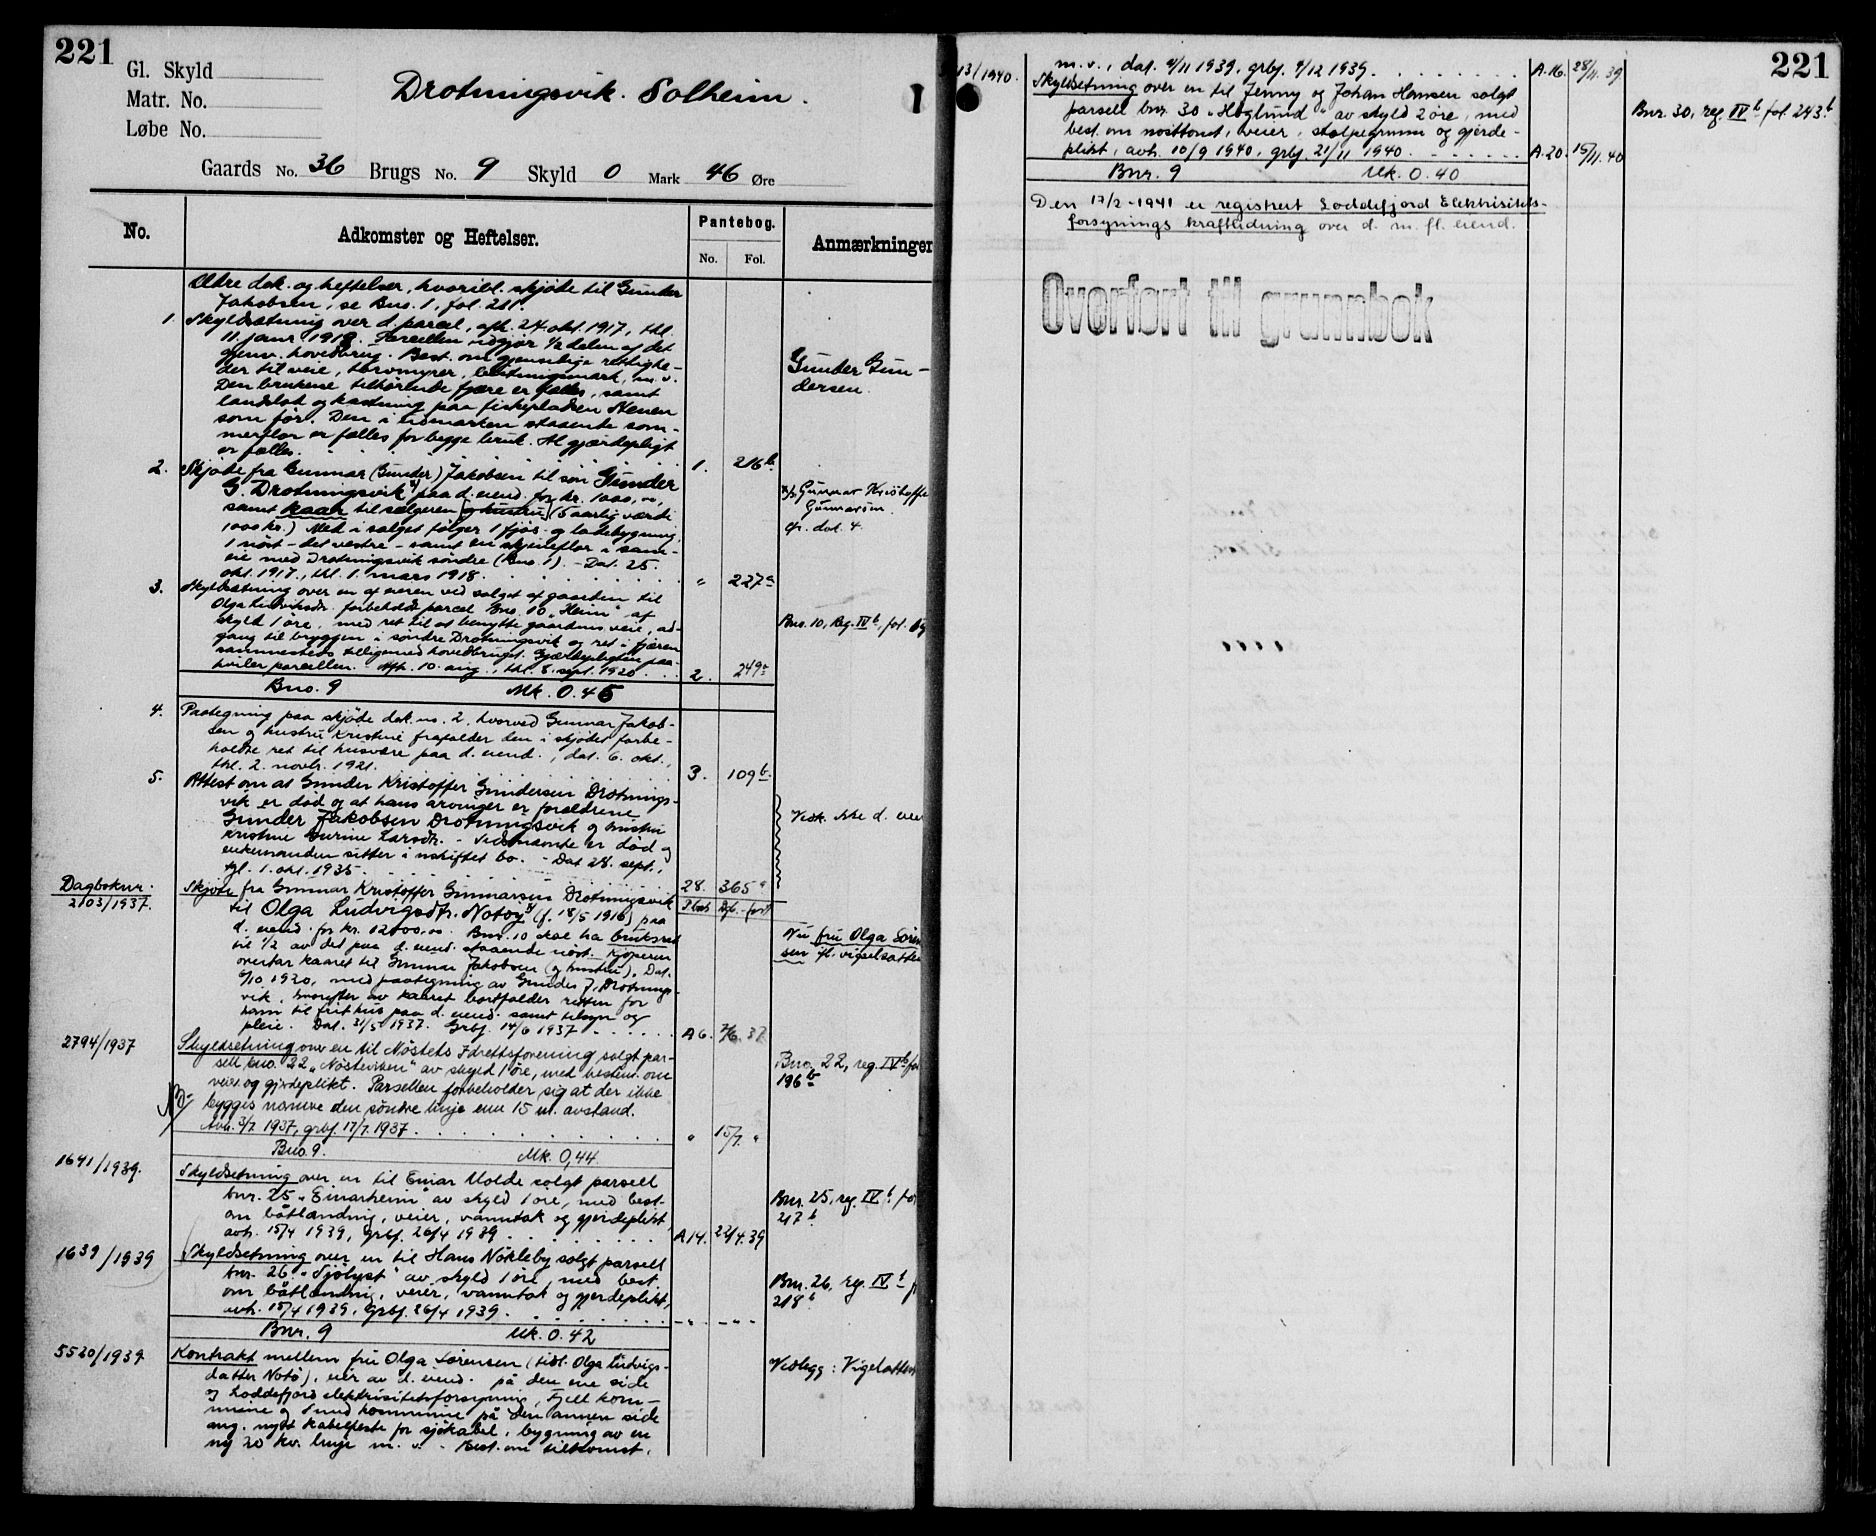 221
Gl. Skyld
Matr. No.
Løbe No.
Drotningsvik. Solheim.
1
Gaards No. 36 Brugs No. 9 Skyld 0 Mark 46 Øre
No.
Adkomster og Heftelser.
Pantebog.
No. Fol.
Anmærkninger
Ældre dok. og heftelser, hvoribl. skjøde til Gunder
Jakobsen, se Bno. 1, fol. 211.
1. Skyldsætning over d. parcel, afh. 24. okt. 1917, thl.
11. januar 1918. Parcellen udgjør 1/2 delen af det
gjenv. hovedbrug. Best. om gjensidige rettighe-
der til veie, torvmyrer, beitningsmark, m. v.
Den brukene tilhørende fjære er fælles, samt
landslot og kastning paa fiskepladsen Stenen
som før. Den i utmarken staaende som-
merflor er fælles for begge bruk. Al gjærdepligt
er fælles. 1. 216 b.
Gunder Gun-
dersen.
2. Skjøde fra Gunnar (Gunder) Jakobsen til søn Gunder
G. Drotningsvik x) paa d. eiend. for kr. 1000,00,
samt kaar til sælgeren (og hustru) (5 aarlig værdi
1000 kr.) Med i salget følger 1 fjøs- og ladebygning,
1 nøst - det vestre - samt en skjeneflor i same-
eie med Drotningsvik søndre (Bno. 1). - Dat. 25.
okt. 1917, thl. 1. mars 1918. " 227 a
x) Gunnar Kristoffe
Gunnarsen
cfr. dok. 4.
3. Skyldsætning over en af eieren ved salget af gaarden til
Olga Ludviksdr. forbeholdt parcel Bno. 10 "Heim" af
skyld 1 øre, med ret til at benytte gaardens veie, ad-
gang til bryggen i søndre Drotningsvik og ret i fjæren
sammesteds tilligemed hovedbruget. Gjærdepligten paa-
hviler parcellen. - Afh. 10. aug., thl. 8. sept. 1920. 2. 249 a
Bno. 10, Reg. IV b, fol.
Bno. 9 Mk. 0.45
4. Paategning paa skjøde dok. no. 2, hvorved Gunnar Jakob-
sen og hustru Kristine frafalder den i skjødet forbe-
holdte ret til husvære paa d. eiend., dat. 6. okt.,
thl. 2. novbr. 1921. 3. 109 b.
5. Attest om at Gunder Kristoffer Gundersen Drotnings-
vik er død og at hans arvinger er forældrene
Gunder Jakobsen Drotningsvik og hustru
Kristine Gurine Larsdtr. - Sidstnævnte er død og
enkemanden sitter i uskiftet bo. - Dat 28. sept.,
tgl. 1. okt. 1935. 28. 365 a
Vedk. ikke d. eien
Dagboknr.
2103/1937. Skjøte fra Gunnar Kristoffer Gunnarsen Drotningsvik
til Olga Ludvigsdtr. Notøy x) (f. 18/5 1916) paa
d. eiend. for kr. 12000,00. Bnr. 10 skal ha bruksret
til 1/2 av det paa d. eiend. staaende nøst. Kjøperen
overtar kaaret til Gunnar Jakobsen (og hustru). Dat.
6/10 1920, med paategning av Gunder J. Drotnings-
vik, hvorefter av kaaret bortfalder retten for
ham til frit hus paa d. eiend. samt tilsyn og
pleie. Dat. 31/5 1937. Grbf. 14/6 1937 A 6. 7/6 37
Nu fru Olga Søren
sen ifl. vigselsattes
2794/1937 Skyldsetning over en til Nøstets Idrettsforening solgt par-
sell bno. 22 "Nøsteviken" av skyld 1 øre, med bestem. om
veier og gjerdeplikt. Parsellen forbeholder sig at der ikke
bygges nærmere den søndre linje enn 15 m. avstand.
Avh. 3/7 1937, grbf. 17/7 1937. " 15/7 "
NB
Bno. 22, reg. IV b fo
196 b
Bno. 9. Mk. 0,44
1641/1939. Skyldsetning over en til Einar Molde solgt parsell
bnr. 25 "Einarheim" av skyld 1 øre, med best.
om båtlanding, veier, vanntak og gjerdeplikt
avh. 15/4 1939, grbf. 26/4 1939. A 14. 22/4. 39
Bnr. 25, reg. IV b fo
217 b
1639/1939 Skyldsetning over en til Hans Nökleby solgt parsell
bnr. 26 "Sjölyst" av skyld 1 øre, med best.
om båtlanding, veier, vanntak og gjerdeplikt,
avh. 15/4 1939, grbf. 26/4 1939. - " - - " "
Bnr. 26, reg. IV b f
218 b
Bnr. 9 Mk. 0.42
5520/1939 Kontrakt mellem fru Olga Sørensen (tidl. Olga Ludvigs-
datter Notø), eier av d. eiend. på den ene side
og Loddefjord elektrisitetsforsyning, Fjell kom-
mune og Sund kommune på den annen side
ang. nytt kabelfeste for sjökabel, bygning av en
ny 20 kv. linje m. v. - Best. om tilkomst,
Vedlegg: Vigelsattes
221
13/1940.
m. v., dat. 4/11 1939, grbf. 4/12 1939. A. 16. 28/11. 39
Skyldsetning over en til Jenny og Johan Hansen solgt
parsell bnr. 30 "Høglund" av skyld 2 øre, med
best. om nosttomt, veier, stolpegrunn og gjerde-
plikt, avh. 10/9 1940, grbf. 21/11 1940. A. 20. 15/11. 40
Bnr. 30, reg. IV b fol. 243 b
Bnr. 9 Mk. 0.40
Den 17/2-1941 er registrert Loddefjord Elektrisitets-
forsynings kraftledning over d. m. fl. eiend.
Overført til grunnbok